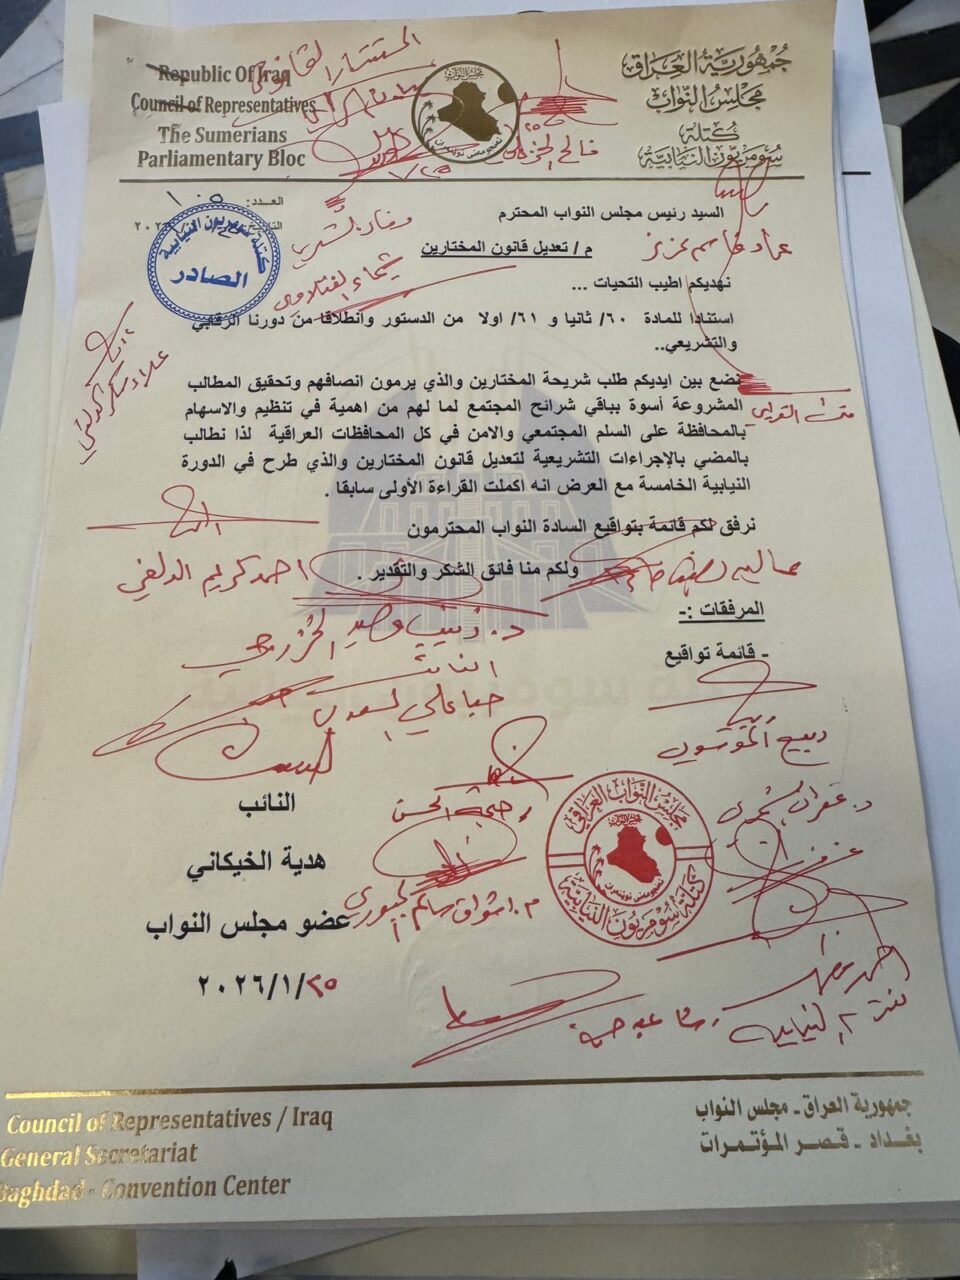 Republic Of Iraq
Council of Representatives
The Sumerians
Parliamentary Bloc
جمهورية العراق
مجلس النواب
كتلة
سومريون النيابية
المستشار القانوني
فالح الخزعلي
العدد: ١٠٥
التاريخ:
كتلة سومريون النيابية
الصادر
السيد رئيس مجلس النواب المحترم
م / تعديل قانون المختارين
عماد قاسم عزيز
نهديكم اطيب التحيات ...
استنادا للمادة ٦٠/ ثانيا و ٦١/ اولا من الدستور وانطلاقا من دورنا الرقابي
والتشريعي..
نضع بين ايديكم طلب شريحة المختارين والذي يرمون انصافهم وتحقيق المطالب
المشروعة أسوة بباقي شرائح المجتمع لما لهم من اهمية في تنظيم والاسهام
بالمحافظة على السلم المجتمعي والامن في كل المحافظات العراقية لذا نطالب
بالمضي بالإجراءات التشريعية لتعديل قانون المختارين والذي طرح في الدورة
النيابية الخامسة مع العرض انه اكملت القراءة الأولى سابقا .
نرفق لكم قائمة بتواقيع السادة النواب المحترمون
ولكم منا فائق الشكر والتقدير .
احمد كريم الدلفي
المرفقات :-
- قائمة تواقيع
د. زينب الخزرجي
النائب
صبا علي
ربيع الموسوي
النائب
هدية الخيكاني
عضو مجلس النواب
٢٠٢٦/١/٢٥
رحيمة الحسن
م. اشواق سالم الجبوري
مجلس النواب العراقي
كتلة سومريون النيابية
Council of Representatives / Iraq
General Secretariat
Baghdad - Convention Center
جمهورية العراق - مجلس النواب
بغداد - قصر المؤتمرات